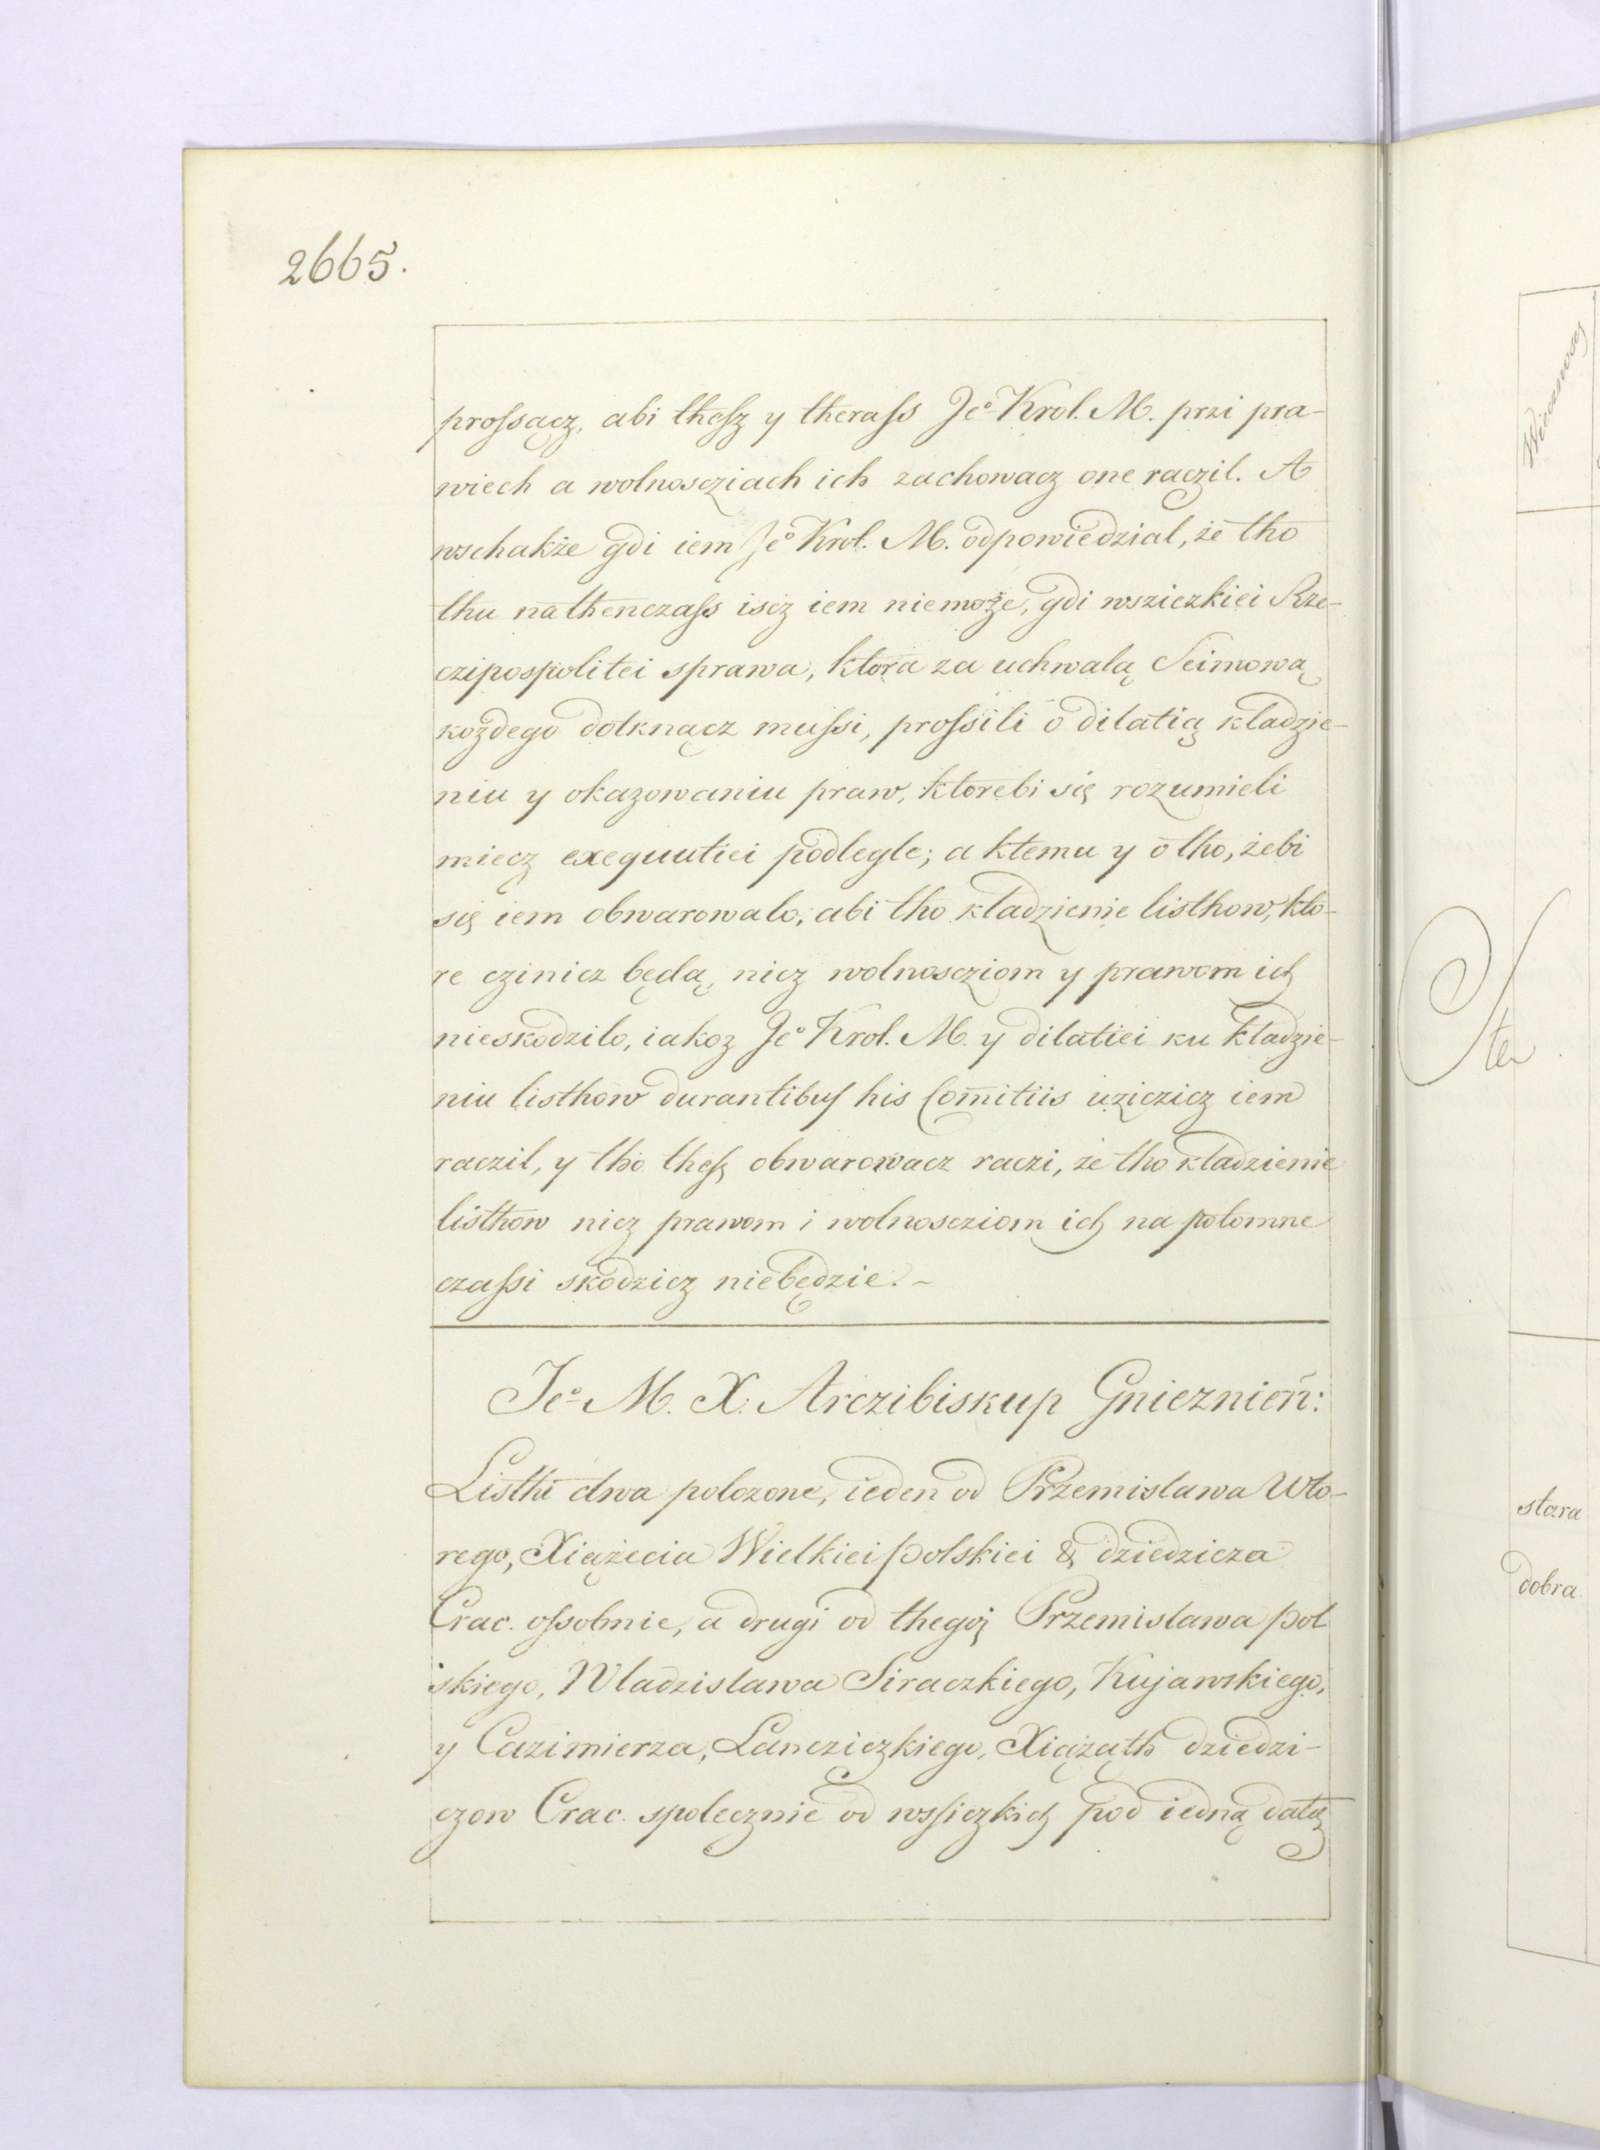 2665.
prossącz, abi thesz y therass Je° Krol. M. przi pra-
wiech a wolnoscziach ich zachowacz one raczil. A
wschakże gdi iem Je° Krol. M. odpowiedzial, że tho
thu nathenczass iscz iem niemoże, gdi wsziczkiei Rze-
czipospolitei sprawa, ktora za uchwalą Seimową
kożdego dotknącz mussi, prossili o dilatią kladzie-
niu y okazowaniu praw, ktorebi się rozumieli
miecz exequutiei podlegle; a ktemu y o tho, żebi
się iem obwarowalo, abi tho kladzienie listhow, kto-
re czinicz będą, nicz wolnoscziom y prawom ich
nieskodzilo, iakoz Je° Krol. M. y dilatiei ku kladzie-
niu listhow durantibus his Comitiis uziczicz iem
raczil, y tho thesz obwarowacz raczi, że tho kladzienie
listhow nicz prawom i wolnoscziom ich na potomne
czassi skodzicz niebędzie. -
Je° M. X. Arczibiskup Gnieznień:
Listhi dwa polozone, ieden od Przemislawa Wto-
rego, Xiążecia Wielkiei polskiei & dziedzicza
Crac. ossobnie, a drugi od thegoż Przemislawa pol
skiego, Wladzislawa Siraczkiego, Kujawskiego,
y Cazimierza, Lancziczkiego, Xiążąth dziedzi-
czow Crac. spolecznie od wssiczkich pod iedną datą
stara
dobra